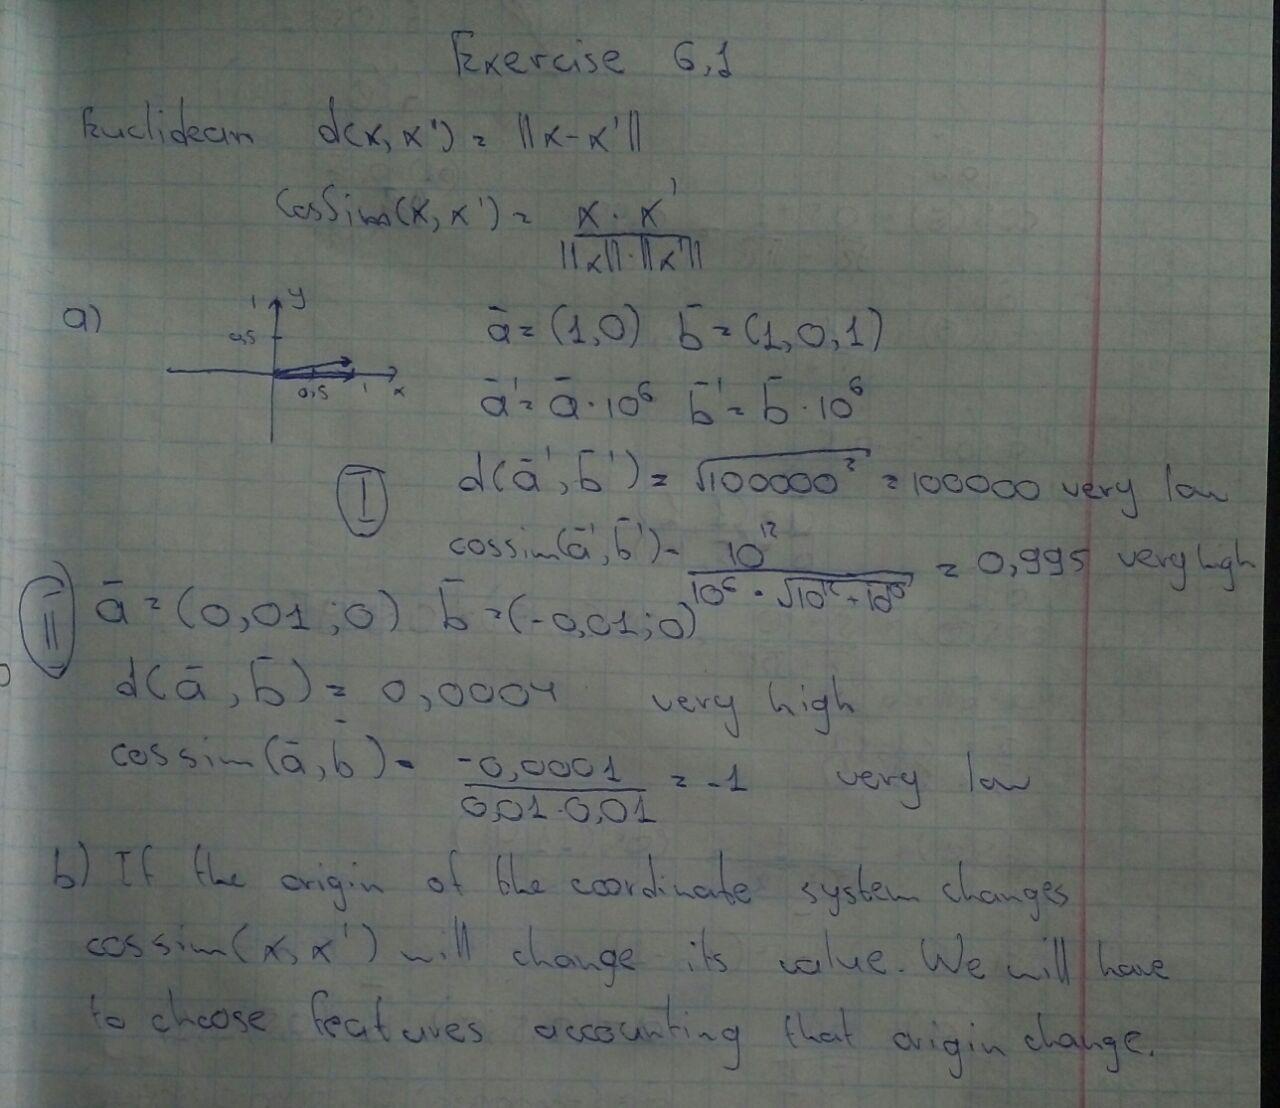 Exercise 6,1
Euclidean d(x, x') = ||x-x'||
CosSim(x, x') = x · x' / ||x||·||x'||
a) 1 y 0,5 0,5 1 x
ā = (1,0) b̄ = (1,0,1)
ā' = ā·10⁶ b̄' = b̄·10⁶
I d(ā', b̄') = √100000² = 100000 very low
cossim(ā', b̄') = 10¹² / 10⁶ · √10¹²+10¹⁰ = 0,995 very high
II ā = (0,01;0) b̄ = (-0,01;0)
d(ā, b̄) = 0,0004 very high
cossim(ā, b̄) = -0,0001 / 0,01·0,01 = -1 very low
b) If the origin of the coordinate system changes
cossim(x, x') will change its value. We will have
to choose features accounting that origin change.